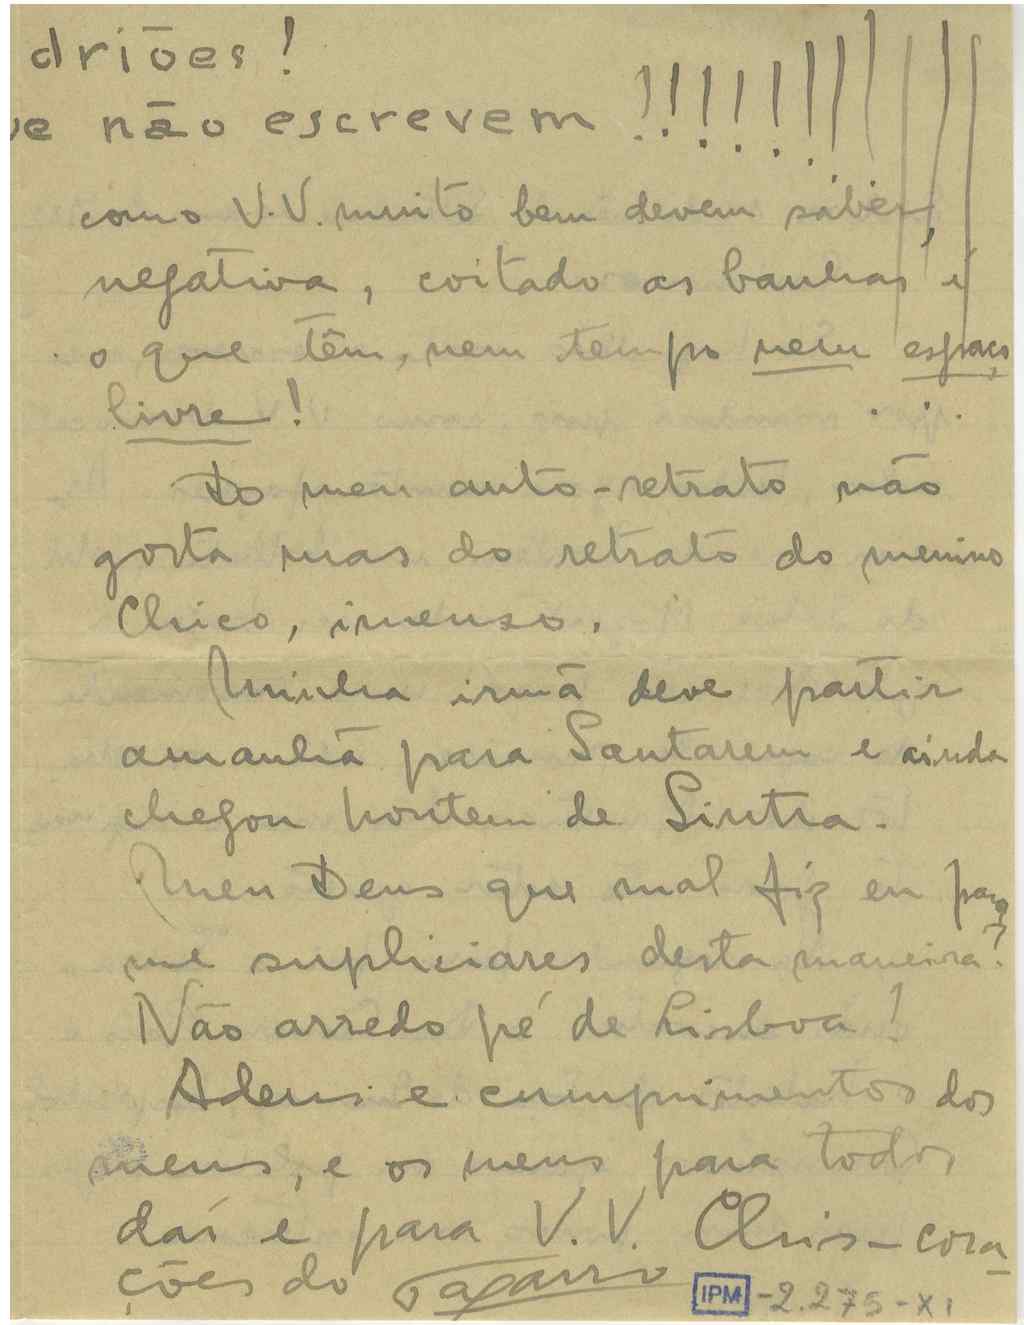 driões!
e não escrevem !!!!!!!!!!!!
como V.V. muito bem devem saber,
negativa, coitado as banhas é
o que têm, nem tempo nem espaço
livre! ...
Do meu auto-retrato não
gosta mas do retrato do menino
Chico, imenso.
Minha irmã deve partir
amanhã para Santarem e ainda
chegou hontem de Sintra.
Meu Deus que mal fiz eu para
me supliciares desta maneira?
Não arredo pé de Lisboa!
Adeus e cumprimentos dos
meus, e os meus para todos
daí e para V.V. Chis-cora
ções do
IPM -2.275-XI